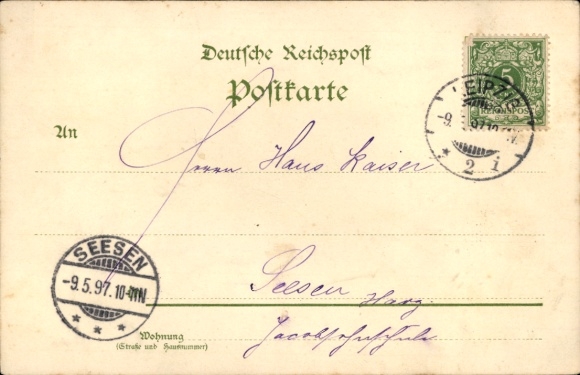 Deutsche Reichspost
Postkarte
5
REICHSPOST
LEIPZIG
-9. 5.97.10-11N.
* 2 i
An
Herrn Hans Kaiser
SEESEN
-9.5.97.10-11N
* * *
Seesen Harz.
Wohnung
(Straße und Hausnummer)
Jacobsohnschule